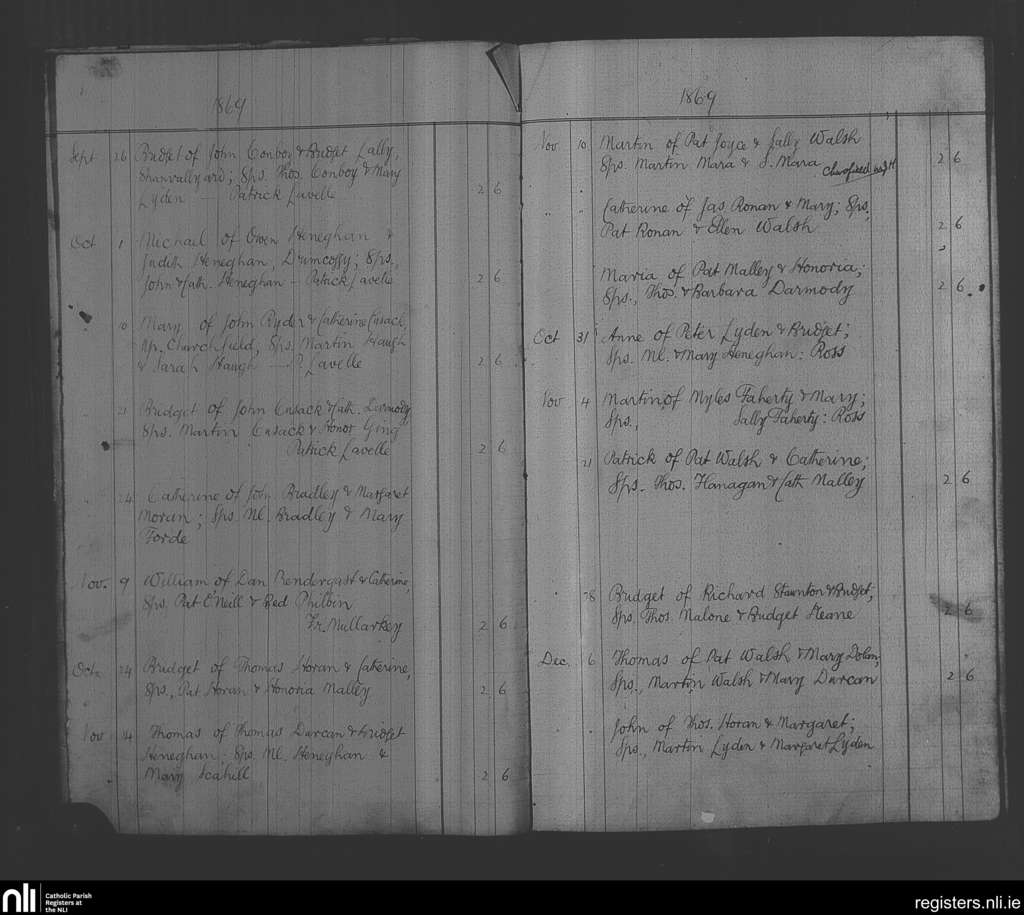 1869
Sept 26 Bridget of John Conboy & Bridget Lally,
Shanvallyard; Sps. Thos. Conboy & Mary
Lyden — Patrick Lavelle 2 6
Oct 1 Michael of Owen Heneghan &
Judith Heneghan, Drumcoggy; Sps.,
John & Cath. Heneghan - Patrick Lavelle 2 6
10 Mary of John Ryder & Catherine Cusack,
Upr. Churchfield, Sps. Martin Haugh
& Sarah Haugh — P. Lavelle 2 6
21 Bridget of John Cusack & Cath. Darmody
Sps. Martin Cusack & Honor Ging
Patrick Lavelle 2 6
24 Catherine of John Bradley & Margaret
Moran; Sps Ml. Bradley & Mary
Forde
Nov. 9 William of Dan Prendergast & Catherine,
Sps. Pat O'Neill & Bed Philbin
Fr. Mullarkey 2 6
Oct. 24 Bridget of Thomas Horan & Catherine,
Sps., Pat Horan & Honoria Malley 2 6
Nov 4 Thomas of Thomas Durcan & Bridget
Heneghan: Sps. Ml. Heneghan &
Mary Scahill 2 6
1869
Nov 10 Martin of Pat Joyce & Sally Walsh
Sps. Martin Mara & S. Mara 2 6
" " Catherine of Jas Ronan & Mary; Sps,
Pat Ronan & Ellen Walsh 2 6
Maria of Pat Malley & Honoria;
Sps., Thos. & Barbara Darmody 2 6
Oct 31 Anne of Peter Lyden & Bridget;
Sps. Ml. & Mary Heneghan: Ross
Nov 4 Martin of Myles Faherty & Mary;
Sps., Sally Faherty: Ross
21 Patrick of Pat Walsh & Catherine;
Sps. Thos. Flanagan & Cath Malley 2 6
28 Bridget of Richard Staunton & Bridget;
Sps. Thos. Malone & Bridget Heane 2 6
Dec. 6 Thomas of Pat Walsh & Mary Dolan;
Sps., Martin Walsh & Mary Durcan 2 6
John of Thos. Horan & Margaret;
Sps., Martin Lyden & Margaret Lyden
nli
Catholic Parish
Registers at
the NLI
registers.nli.ie